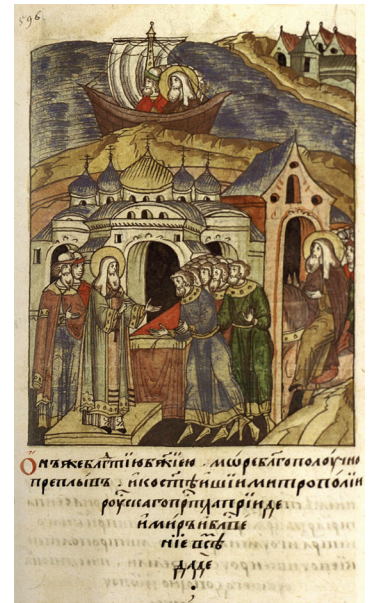 596
Онъже бл҃гⷣтїю бж҃їею. море благополоучно
преплывъ. и ко ст҃ѣишїи митрополїи
роус̾скаго прт҃ла прїиде
и миръ и бл҃гве
нїе всѣⷨ
даде